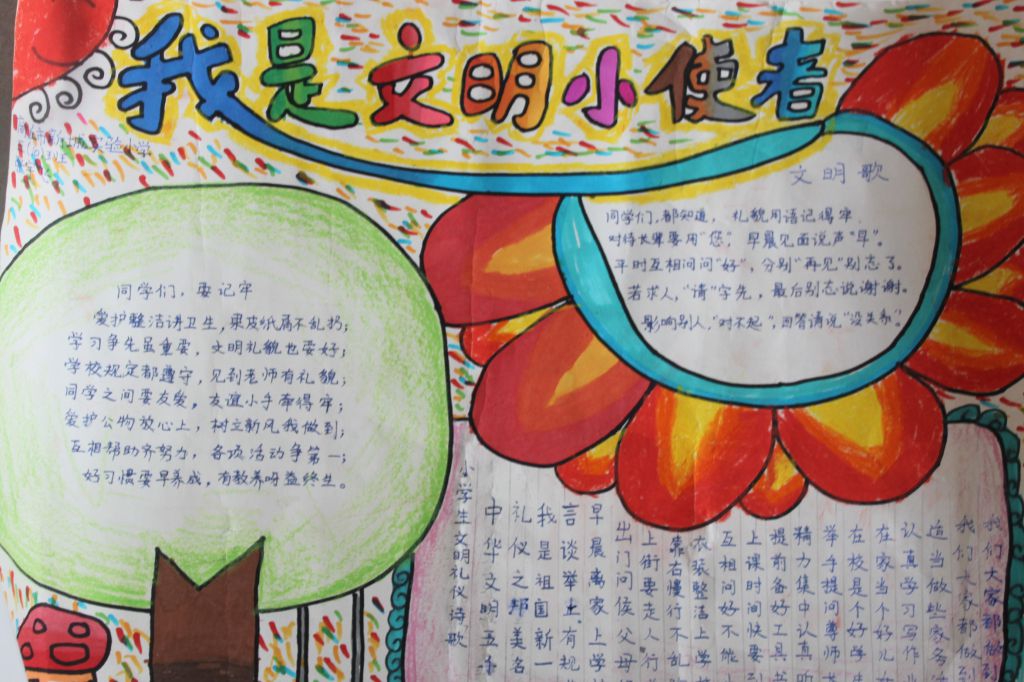 我是文明小使者
市新城实验小学
文明歌
同学们,都知道,礼貌用语记得牢.
对待长辈要用"您",早晨见面说声"早"。
平时互相问问"好",分别"再见"别忘了。
若求人,"请"字先,最后别忘说谢谢。
影响别人,"对不起",回答请说"没关系"。
同学们,要记牢
爱护整洁讲卫生,果皮纸屑不乱扔;
学习争先虽重要,文明礼貌也要好;
学校规定都遵守,见到老师有礼貌;
同学之间要友爱,友谊小手牵得牢;
爱护公物放心上,树立新风我做到;
互相帮助齐努力,各项活动争第一;
好习惯要早养成,有教养呀益终生。
小学生文明礼仪诗歌
中华文明五千
礼仪之邦美名
我是祖国新一
言谈举止有规
早晨离家上学
出门问候父母
上街要走人行
靠右慢行不乱
衣装整洁上学
互相问好不能
上课时间快要到
提前备好工具书
精力集中认真听
举手提问尊师
在校是个好学生
在家当个好儿
认真学习写作
适当做些家务
我们大家都做到
我们大家都做到